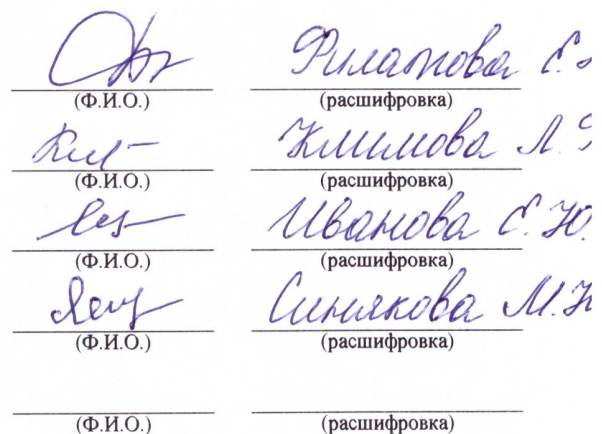 Филатова Е.
(Ф.И.О.) (расшифровка)
Климова Л.
(Ф.И.О.) (расшифровка)
Иванова Е. Ю.
(Ф.И.О.) (расшифровка)
Синякова М.
(Ф.И.О.) (расшифровка)
(Ф.И.О.) (расшифровка)